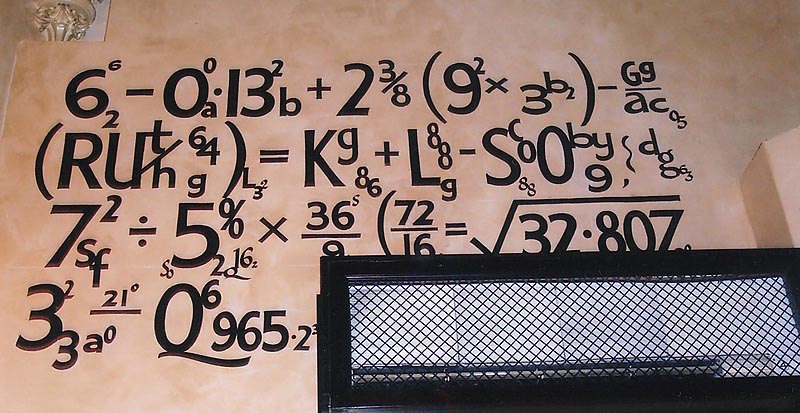 6₂⁶ − 0ₐ⁰·13²b + 2⅜ (9² × 3^b₂) − Gg/ac₀₅
(RU t/h 64/g)L₃² = K^g₈₆ + L⁸⁸g − S^c0₈₈ O^by₉ } dg₆₃
7²sf ÷ 5%₂d16₂ × 36^s/9 (72/16 = √32·807
3²₃a⁰ 21⁰ Q⁶965·2³